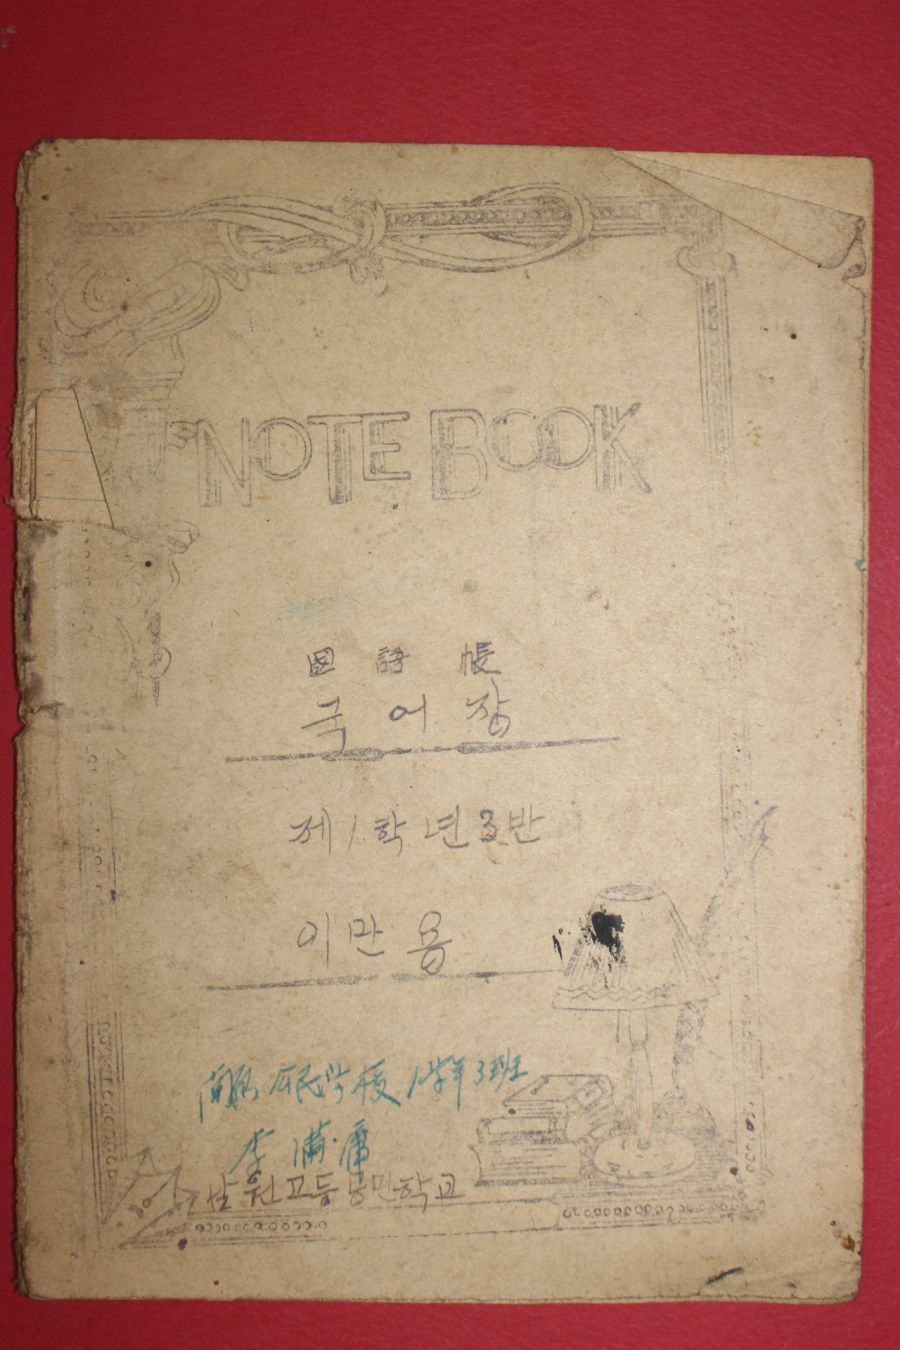 NOTE BOOK
國語帳
국어장
제1학년3반
이만용
公民学校 1学年3班
李滿庸
남원고등공민학교